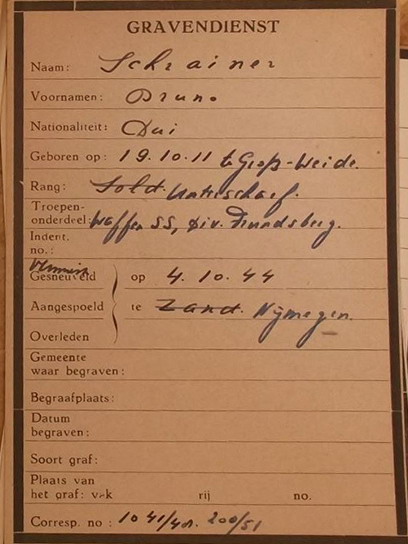 GRAVENDIENST
Naam: Schrainer
Voornamen: Bruno
Nationaliteit: Dui
Geboren op: 19.10.11 te Groß-Weide.
Rang: Sold. Unterscharf.
Troepen-
onderdeel: Waffen SS, Div. Frundsberg.
Indent.
no.:
Vermist
Gesneuveld op 4.10.44
Aangespoeld te Zand. Nijmegen.
Overleden
Gemeente
waar begraven:
Begraafplaats:
Datum
begraven:
Soort graf:
Plaats van
het graf: vak rij no.
Corresp. no: 1041/48. 200/51